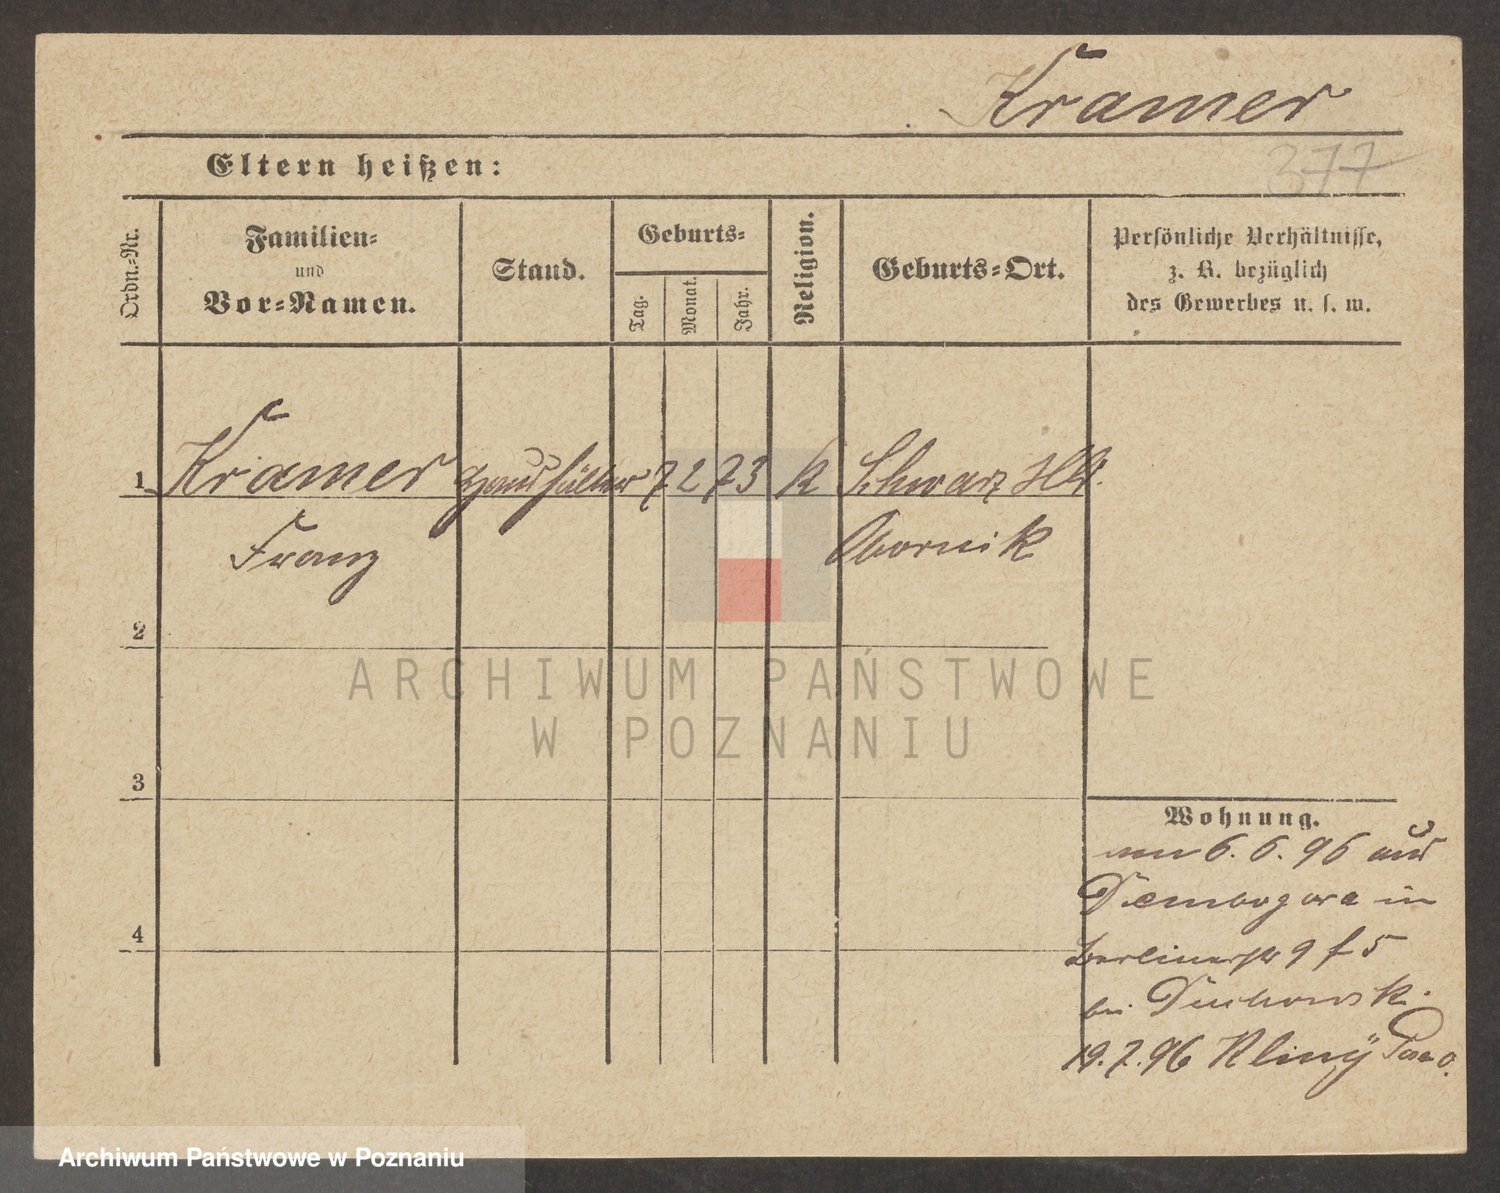 Kramer
377
Eltern heißen:
Ordn.-Nr.
Familien-
und
Vor-Namen.
Stand.
Geburts-
Tag.
Monat.
Jahr.
Religion.
Geburts-Ort.
Persönliche Verhältnisse,
z. B. bezüglich
des Gewerbes u. s. w.
1 Kramer Haushälter 7 2 73 k Schwarz Hld.
Franz Obornik
2
3
4
Wohnung.
am 6. 6. 96 aus
Dembogora in
Berlinerstr 9 f 5
bei Duchowsk.
19. 7. 96 Kliny
ARCHIWUM PAŃSTWOWE
W POZNANIU
Archiwum Państwowe w Poznaniu